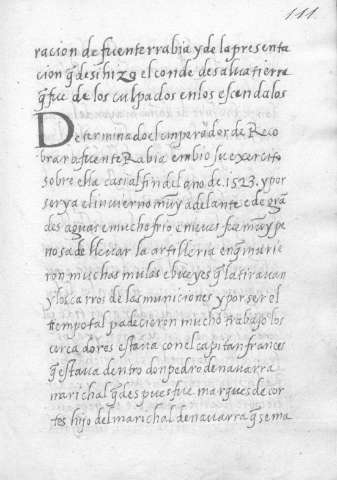 111.
racion de fuenterrabia y de la presenta
cion q̃ de si hizo el conde de saluatierra
q̃ fue de los culpados en los escandalos
Determinado el emperador de Reco
brar a fuente Rabia embio su exercito
sobre ella casi al fin del año de 1523. y por
ser ya el inuierno muy adelante e de grã
des aguas e mucho frio e nieues fue muy pe
nosa de lleuar la artilleria en q̃ murie
ron muchas mulas e bueyes q̃ la tirauan
y los carros de las municiones y por ser el
tiempo tal padecieron mucho trabajo los
cercadores estaua con el capitan frances
q̃ estaua dentro don pedro de nauarra
marichal q̃ despues fue marques de cor
tes hijo del marichal de nauarra q̃ se ma